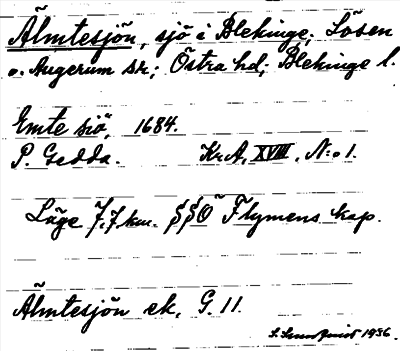 Älmtesjön, sjö i Blekinge; Lösen
o. Augerum sk; Östra hd; Blekinge l.
Emte siö, 1684.
P. Gedda. KrA, XVIII, N:o 1.
Läge 7,7 km. SSO Flymens kap.
Älmtesjön ek, G. 11.
1936.